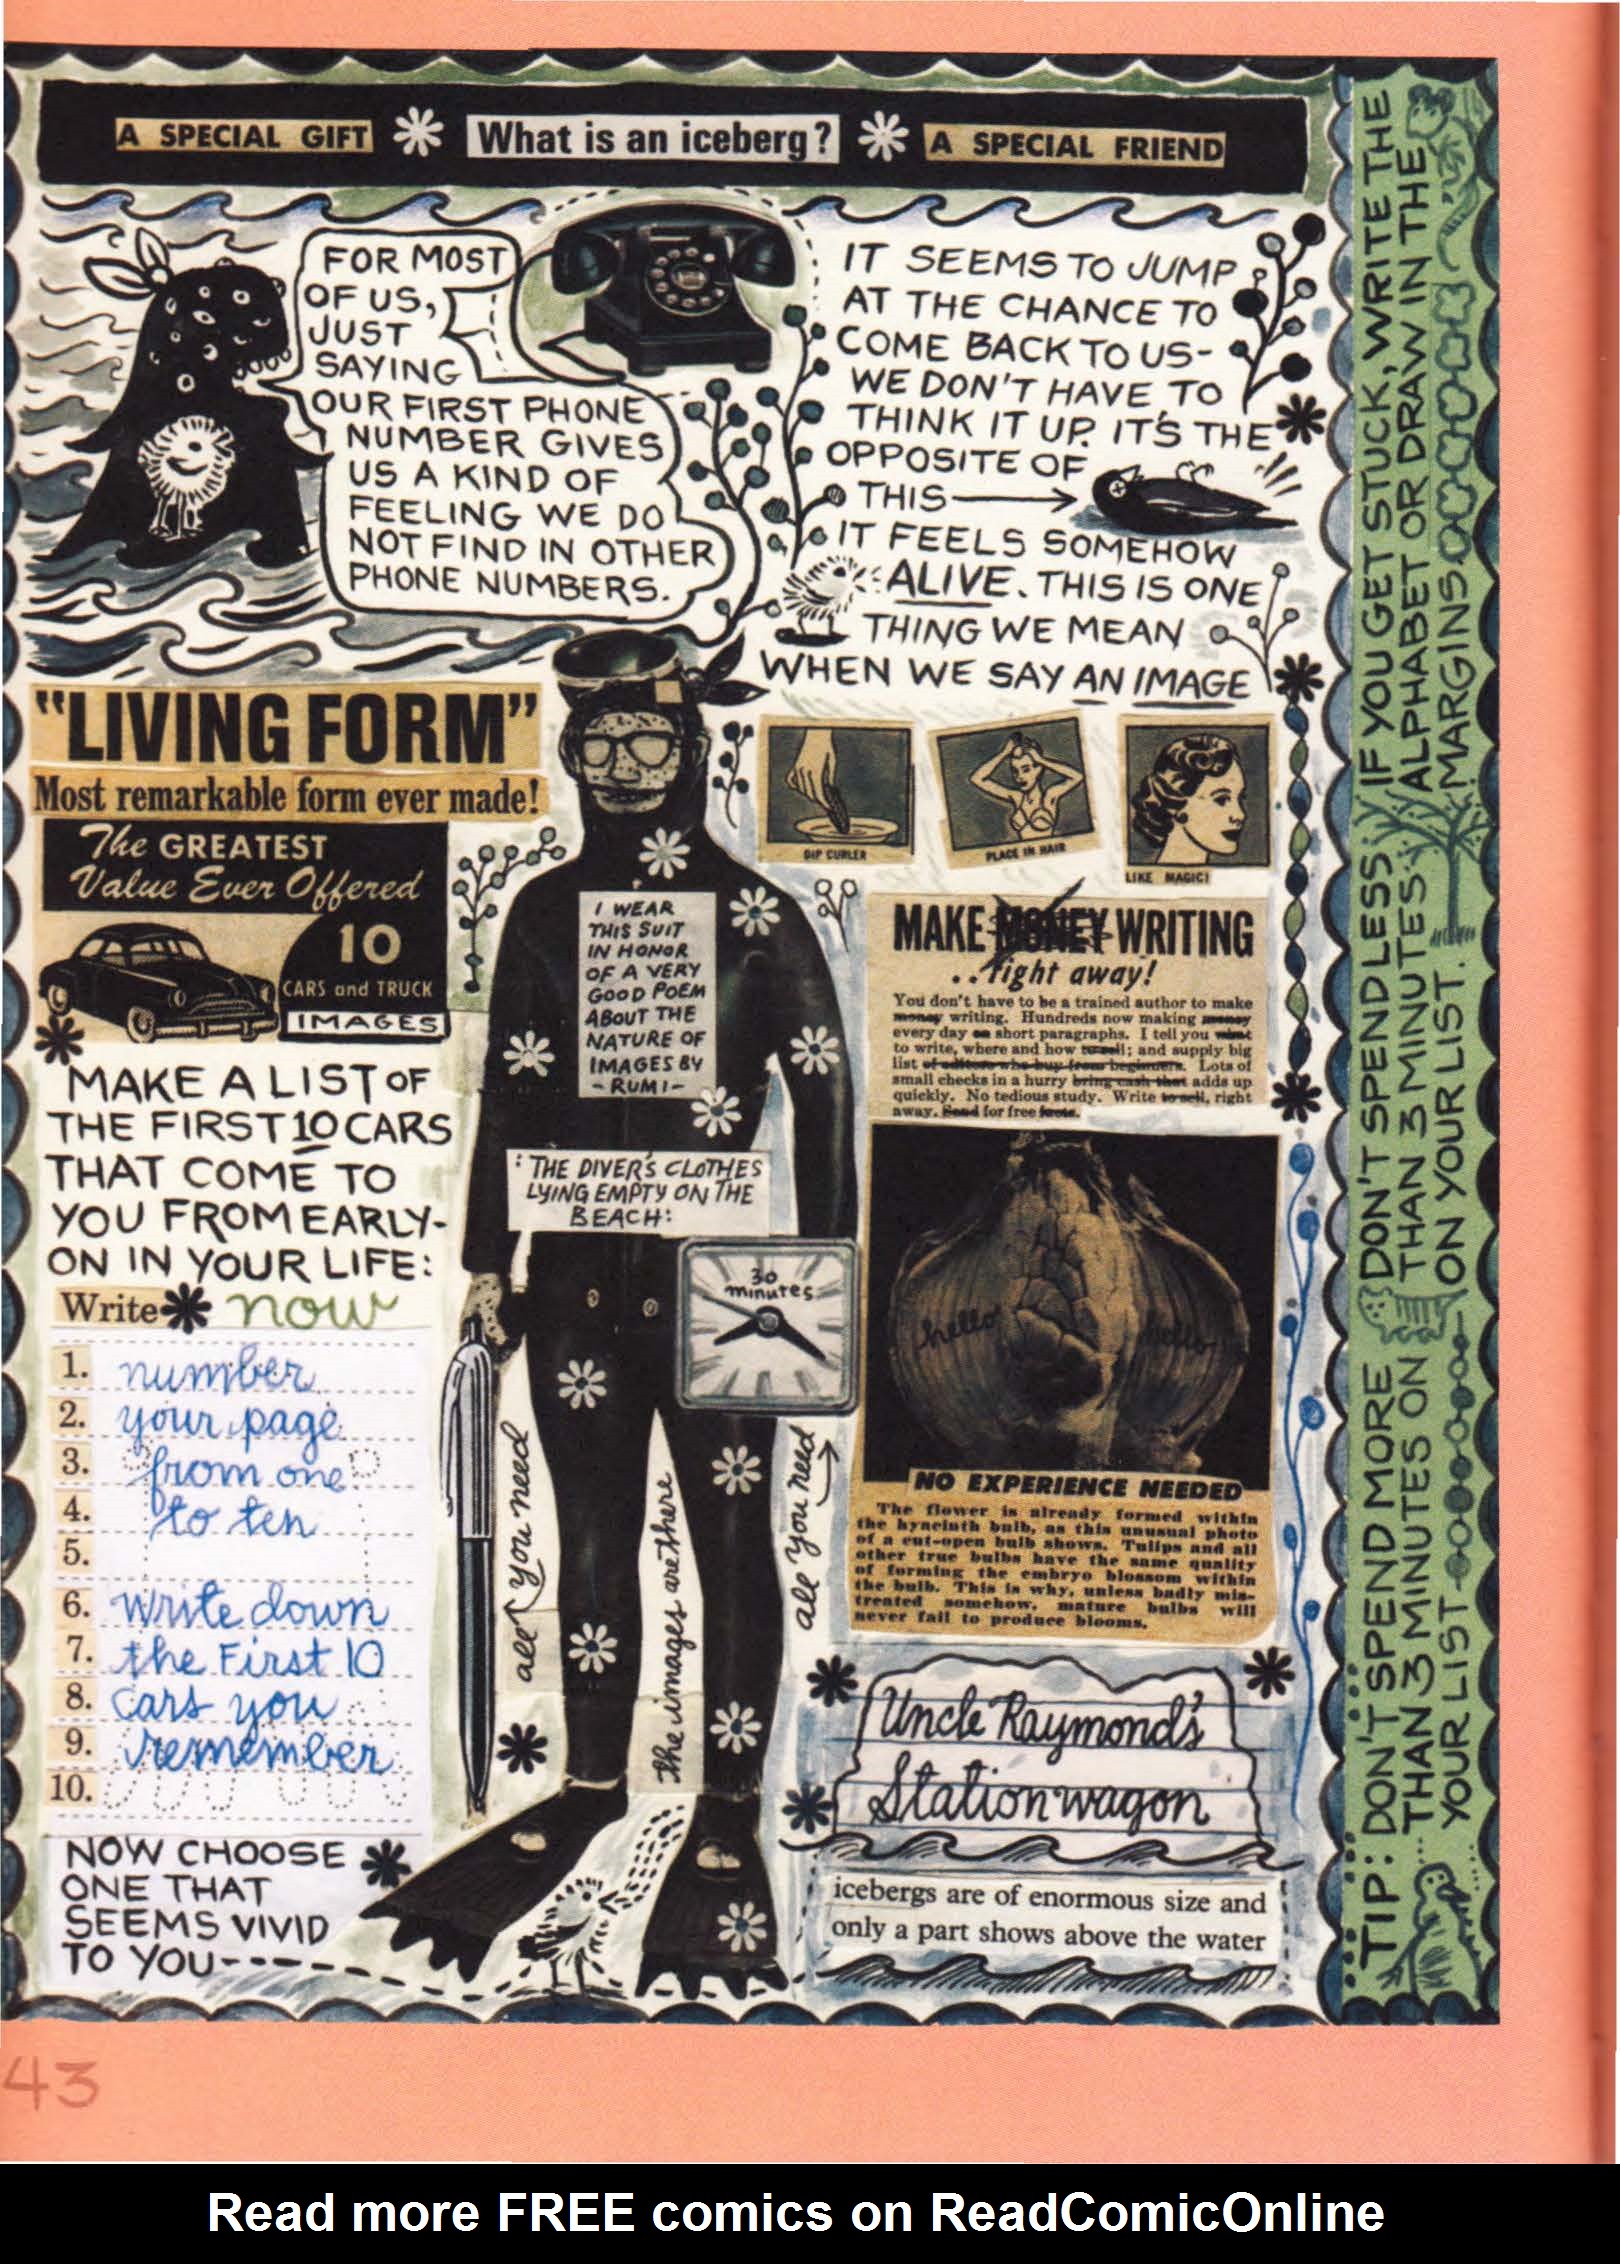 A SPECIAL GIFT
What is an iceberg?
A SPECIAL FRIEND
FOR MOST
OF US,
JUST
SAYING
OUR FIRST PHONE
NUMBER GIVES
US A KIND OF
FEELING WE DO
NOT FIND IN OTHER
PHONE NUMBERS.
IT SEEMS TO JUMP
AT THE CHANCE TO
COME BACK TO US-
WE DON'T HAVE TO
THINK IT UP. IT'S THE
OPPOSITE OF
THIS
IT FEELS SOMEHOW
ALIVE. THIS IS ONE
THING WE MEAN
WHEN WE SAY AN IMAGE
"LIVING FORM"
Most remarkable form ever made!
The GREATEST
Value Ever Offered
10
CARS and TRUCK
IMAGES
MAKE A LIST OF
THE FIRST 10 CARS
THAT COME TO
YOU FROM EARLY-
ON IN YOUR LIFE:
Write now
1. number
2. your page
3. from one
4. to ten
5.
6. write down
7. the First 10
8. cars you
9. remember
10.
NOW CHOOSE
ONE THAT
SEEMS VIVID
TO YOU
I WEAR
THIS SUIT
IN HONOR
OF A VERY
GOOD POEM
ABOUT THE
NATURE OF
IMAGES BY
-RUMI-
:THE DIVER'S CLOTHES
LYING EMPTY ON THE
BEACH:
30
minutes
all you need
the images are there
all you need
DIP CURLER
PLACE IN HAIR
LIKE MAGIC!
MAKE MONEY WRITING
..right away!
You don't have to be a trained author to make
money writing. Hundreds now making money
every day on short paragraphs. I tell you what
to write, where and how to sell; and supply big
list of editors who buy from beginners. Lots of
small checks in a hurry bring cash that adds up
quickly. No tedious study. Write to sell, right
away. Send for free facts.
hello
hello
NO EXPERIENCE NEEDED
The flower is already formed within
the hyacinth bulb, as this unusual photo
of a cut-open bulb shows. Tulips and all
other true bulbs have the same quality
of forming the embryo blossom within
the bulb. This is why, unless badly mis-
treated somehow, mature bulbs will
never fail to produce blooms.
Uncle Raymond's
Stationwagon
icebergs are of enormous size and
only a part shows above the water
TIP: DON'T SPEND MORE DON'T SPEND LESS IF YOU GET STUCK, WRITE THE
THAN 3 MINUTES ON THAN 3 MINUTES ALPHABET OR DRAW IN THE
YOUR LIST ON YOUR LIST. MARGINS.
43
Read more FREE comics on ReadComicOnline